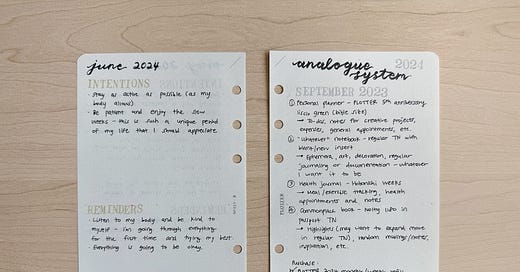 june 2024
INTENTIONS
- Stay as active as possible (as my
body allows)
- Be patient and enjoy the slow
weeks - this is such a unique period
of my life that I should appreciate
REMINDERS
- Listen to my body and be kind to
myself - I'm going through everything
for the first time and trying my best
- Everything is going to be okay.
analogue 2024
system
SEPTEMBER 2023
① Personal planner - PLOTTER 5th anniversary
in green (bible size)
→ To-do, notes for creative projects,
expenses, general appointments, etc.
② "Whatever" notebook - regular TN with
blank/new insert
→ Ephemera, art, decoration, regular
journaling or documentation - whatever
I want it to be
③ Health journal - Hobonichi Weeks
→ Meal/exercise tracking, health
appointments and notes
④ Commonplace book - moving into
passport TN
→ Highlights (may want to expand more
in regular TN), random musings/notes,
inspiration, etc.
Purchase:
PLOTTER 2024
PLOTTER